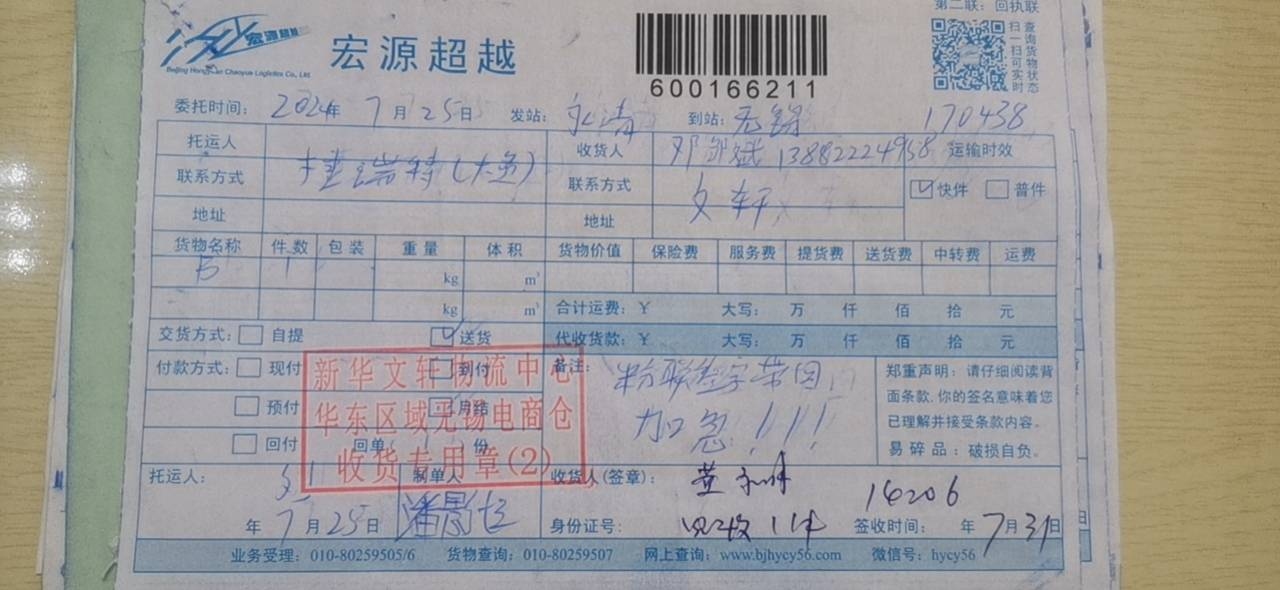 第二联：回执联
宏源超越
宏源超越
Beijing HongYuan Chaoyue Logistics Co., Ltd.
600166211
扫一扫 查询货物可实时状态
委托时间：2024年 7月25日 发站：永清 到站：无锡 170438
托运人 收货人 邓 斌 运输时效
联系方式 捷瑞特（大鱼） 联系方式 文轩 快件 普件
地址 地址
货物名称 件数 包装 重量 体积 货物价值 保险费 服务费 提货费 送货费 中转费 运费
书 1 kg m³
kg m³ 合计运费：¥ 大写： 万 仟 佰 拾 元
交货方式： 自提 送货 代收货款：¥ 大写： 万 仟 佰 拾 元
付款方式： 现付 到付 备注： 粉联签字带回 郑重声明：请仔细阅读背
面条款，你的签名意味着您
预付 月结 加急！！！ 已理解并接受条款内容。
回付 回单（ ）份 易碎品：破损自负。
新华文轩物流中心
华东区域无锡电商仓
收货专用章(2)
托运人： 制单人 收货人(签章)： 16206
年7月25日 身份证号： 实收1件 签收时间： 年7月31日
业务受理：010-80259505/6 货物查询：010-80259507 网上查询：www.bjhycy56.com 微信号：hycy56